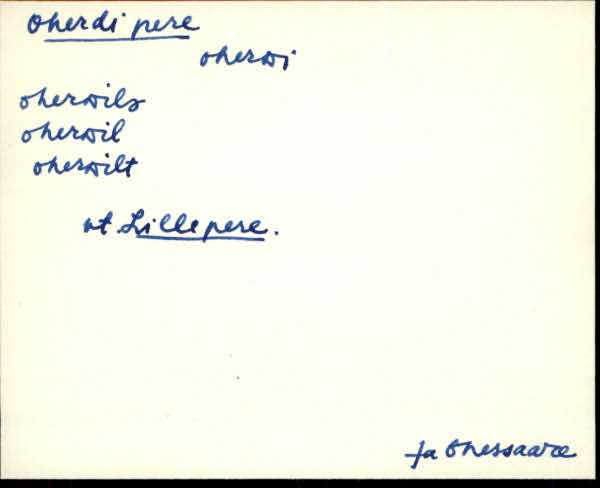 Oherdi pere
oherdi
oherdile
oherdil
oherdilt
vt Lillepere.
Ja Ohessaare